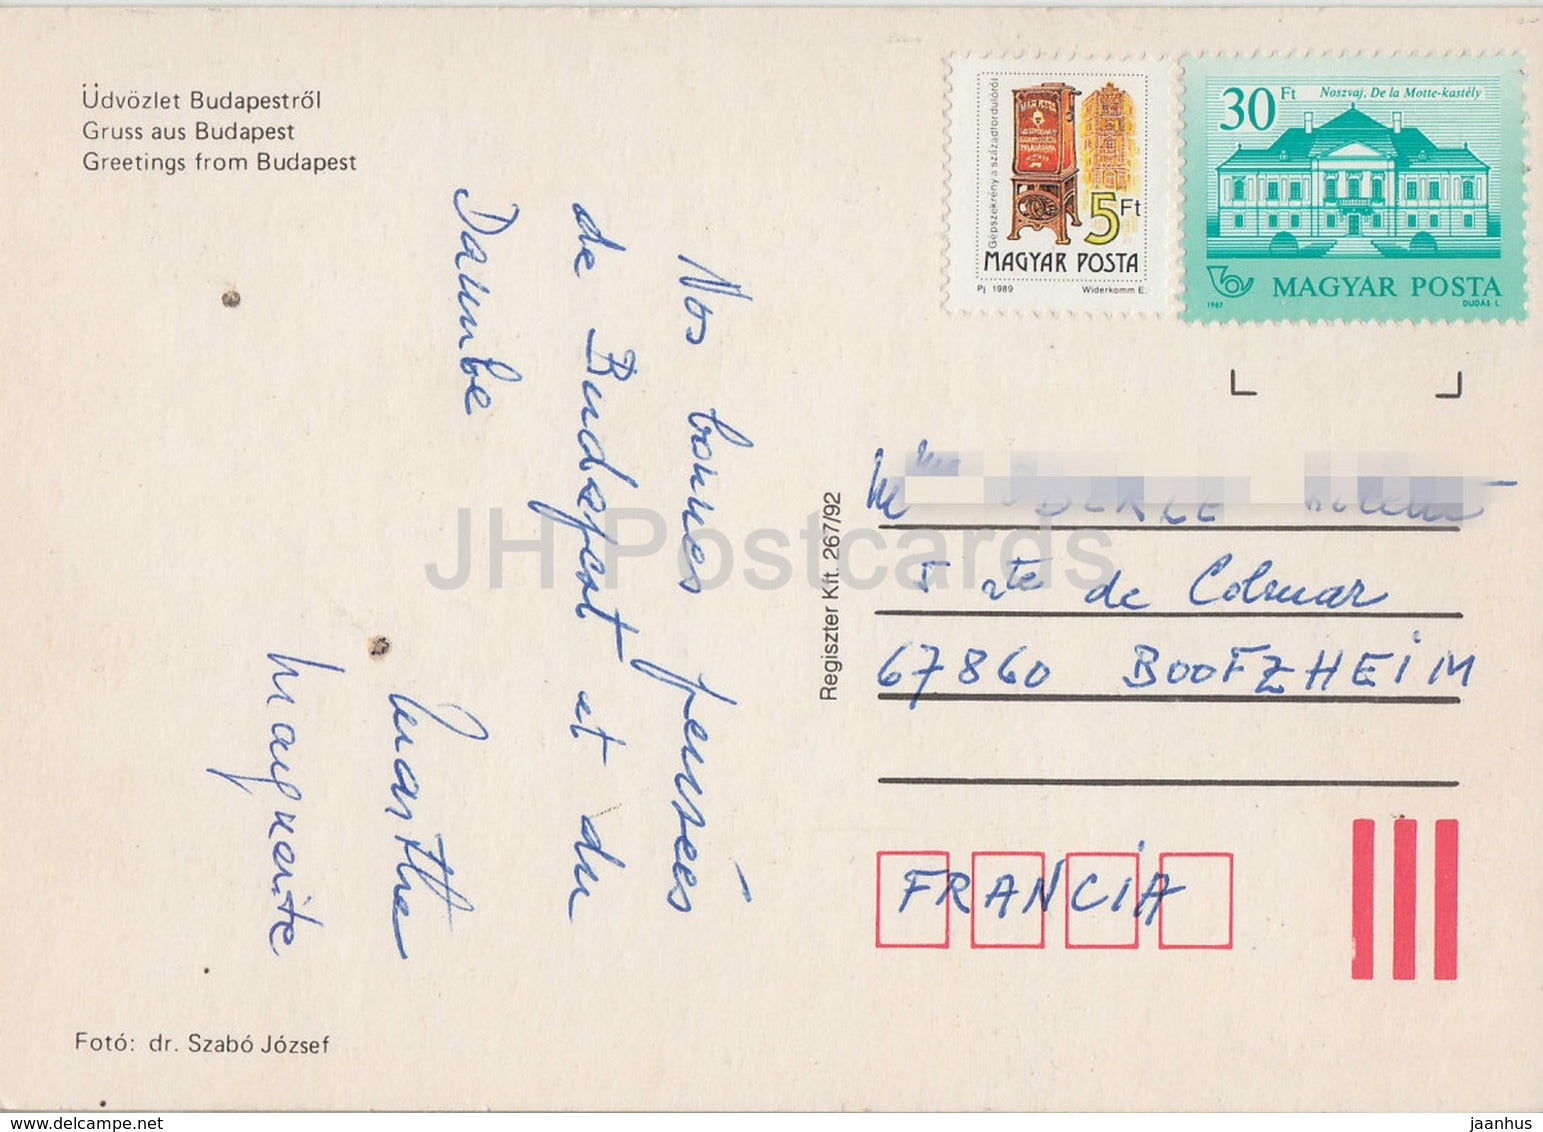 Üdvözlet Budapestről
Gruss aus Budapest
Greetings from Budapest
Nos bonnes pensées
de Budapest et du
Danube
Marthe
Marguerite
Fotó: dr. Szabó József
Regiszter Kft. 267/92
Gépszekrény a századfordulóról
5 Ft
MAGYAR POSTA
Pj 1989 Widerkomm E.
30 Ft Noszvaj, De la Motte-kastély
MAGYAR POSTA
1987 DUDÁS L.
5 rte de Colmar
67860 BOOFZHEIM
FRANCIA
JH Postcards
jaanhus @ delcampe.net